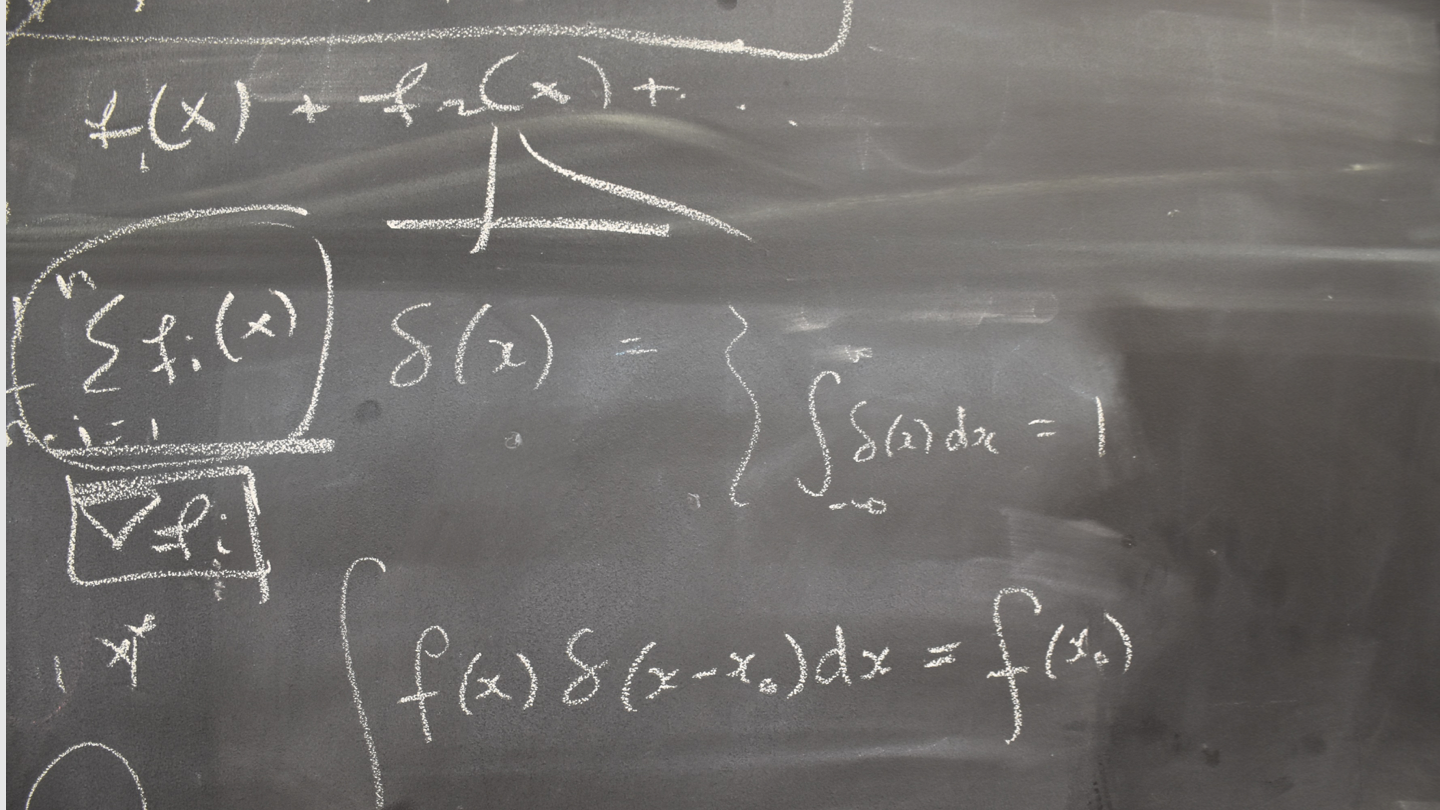 f₁(x) + f₂(x) + . .
n
∑ fᵢ(x)
i=1
δ(x) = { ∫ δ(x) dx = 1
-∞
∇fᵢ
∫ f(x) δ(x-x₀) dx = f(x₀)